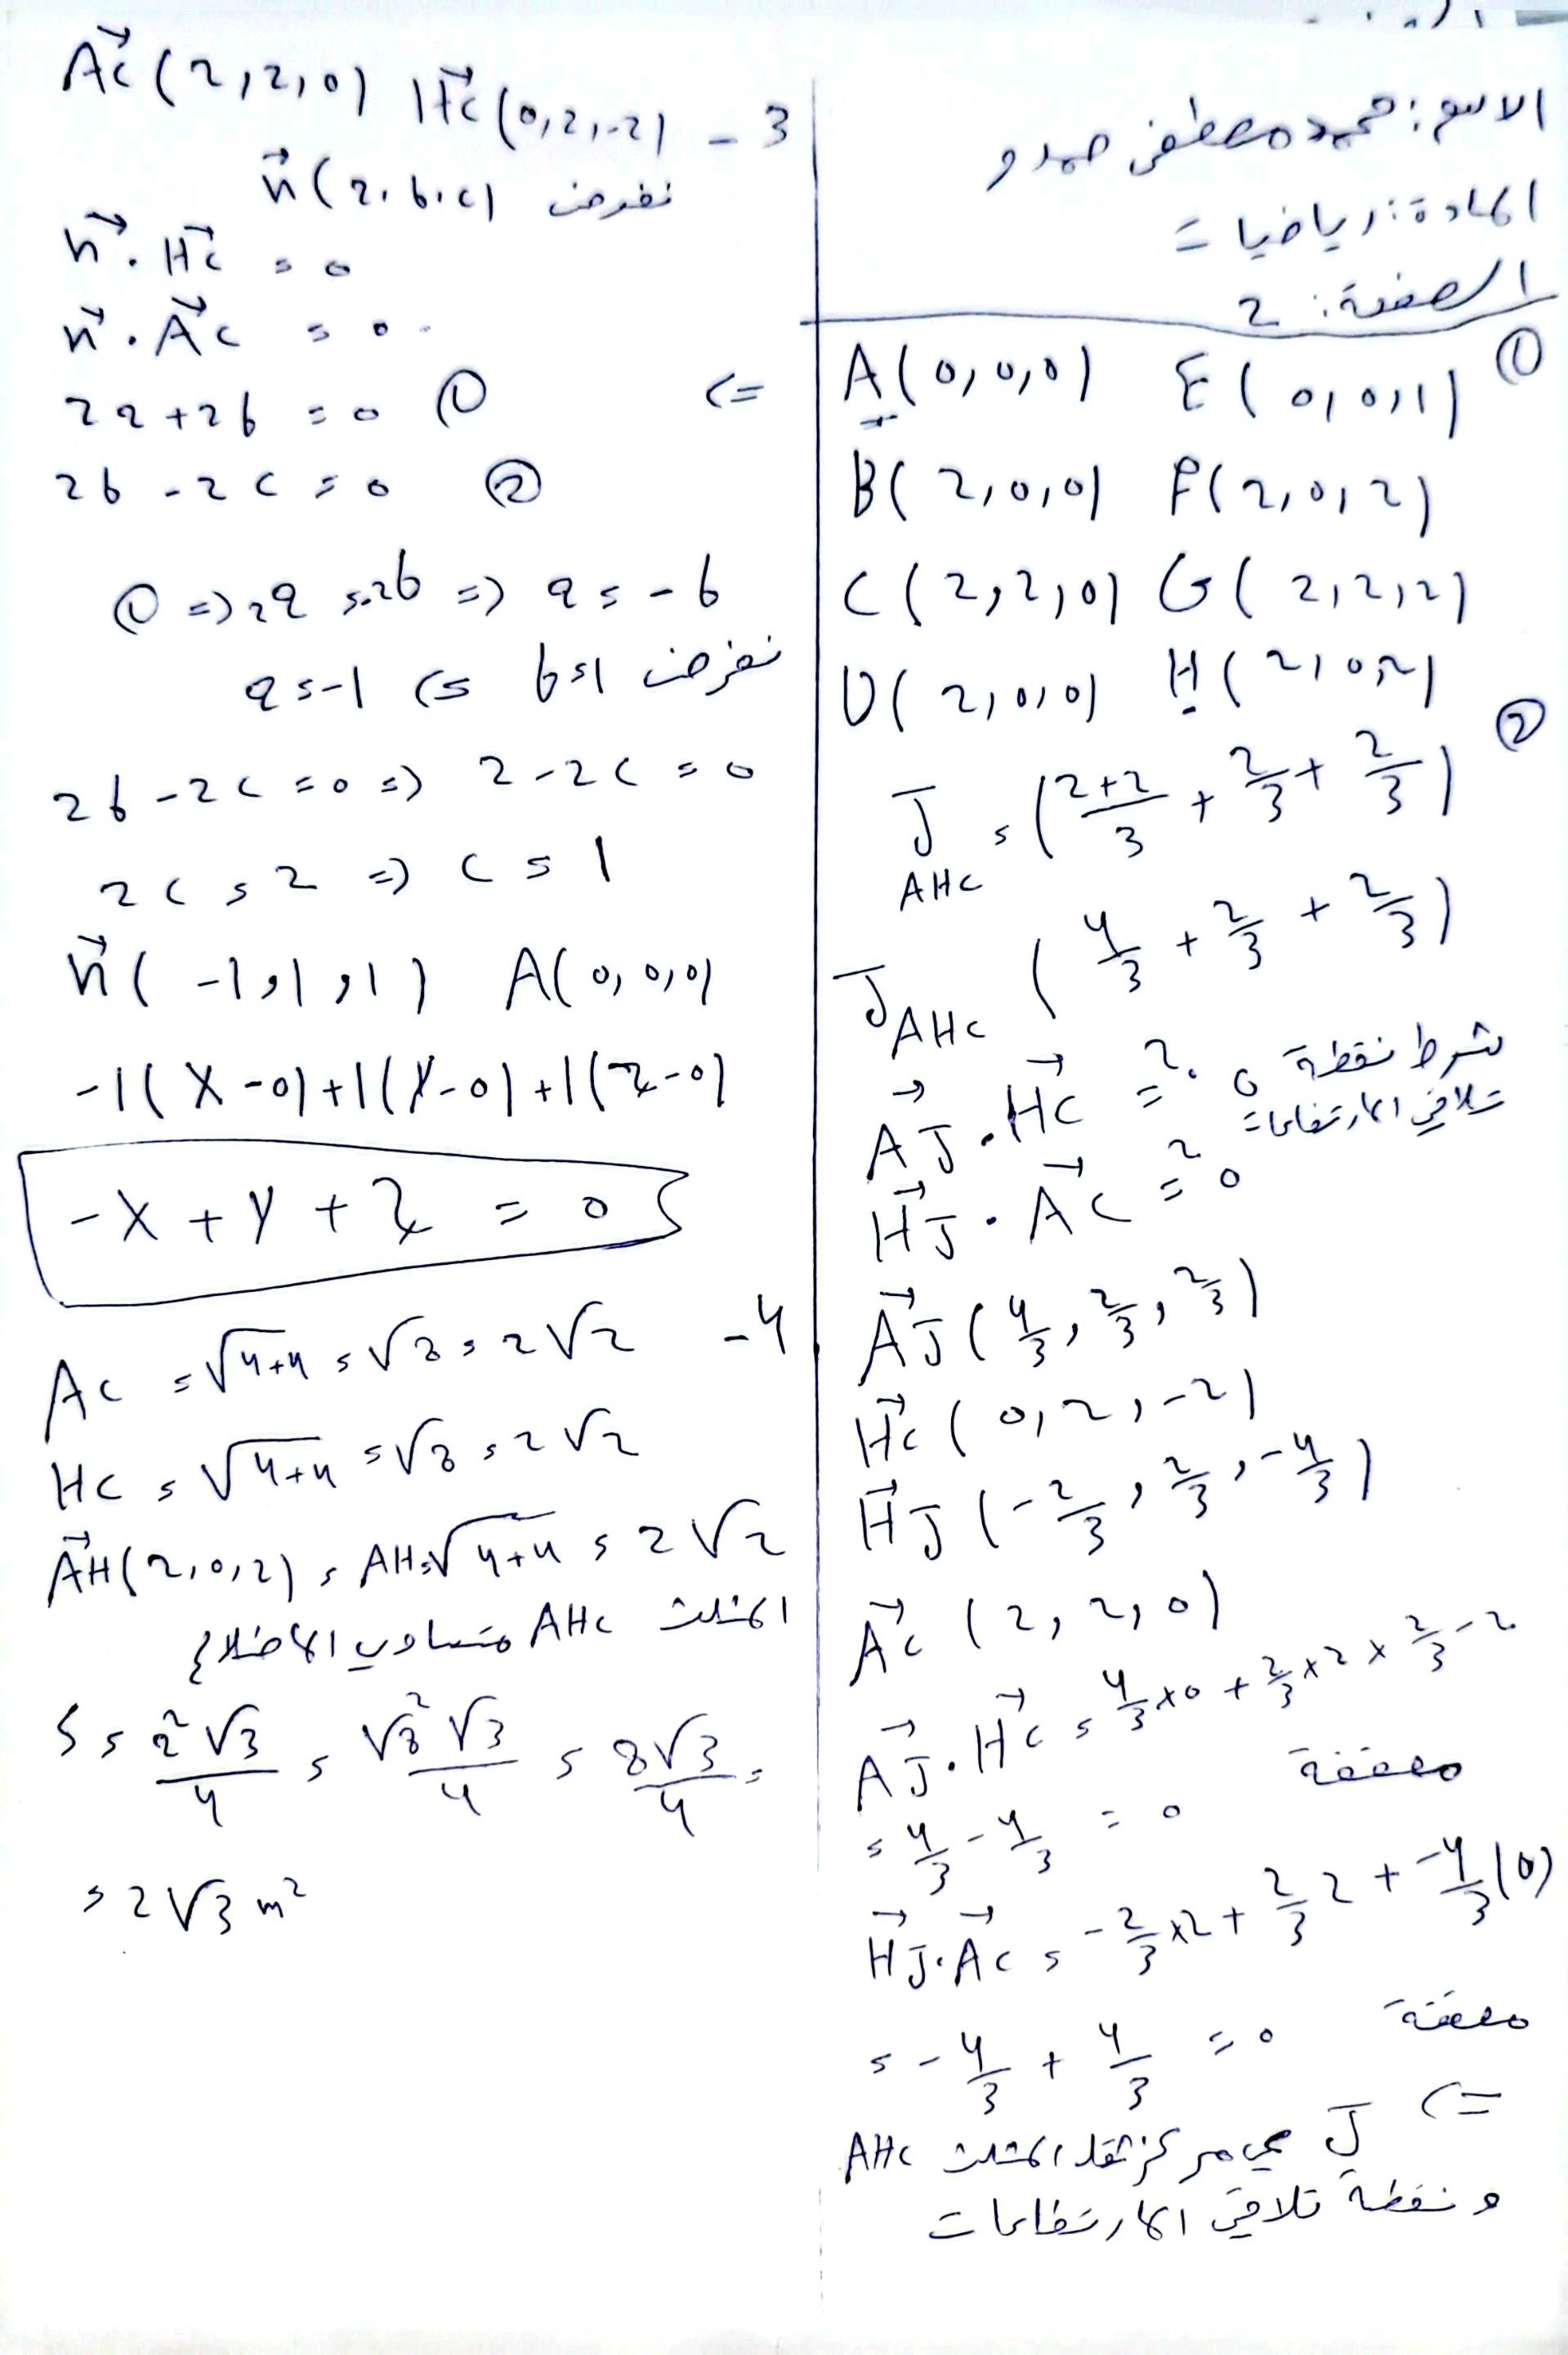 الاسم: محمد مصطفى حمدو
المادة: رياضيات
الصفحة: 2
①
A(0,0,0) E(0,0,1)
B(2,0,0) F(2,0,2)
C(2,2,0) G(2,2,2)
D(2,0,0) H(2,0,2)
②
J AHC = (2+2/3 + 2/3 + 2/3)
J AHC (4/3 + 2/3 + 2/3)
AJ→ . HC→ =? 0 شرط نقطة
تلاقي الارتفاعات
HJ→ . AC→ =? 0
AJ→ (4/3, 2/3, 2/3)
HC→ (0,2,-2)
HJ→ (-2/3, 2/3, -4/3)
AC→ (2,2,0)
AJ→ . HC→ = 4/3 x0 + 2/3 x2 x 2/3 -2
= 4/3 - 4/3 = 0 محققة
HJ→ . AC→ = -2/3 x2 + 2/3 2 + -4/3 (0)
= -4/3 + 4/3 = 0 محققة
<=
J هي مركز ثقل المثلث AHC
و نقطة تلاقي الارتفاعات
AC→ (2,2,0) HC→ (0,2,-2) - 3
نفرض n→ (a,b,c)
n→ . HC→ = 0
n→ . AC→ = 0
<=
2a+2b = 0 ①
2b - 2c = 0 ②
① => 2a = -2b => a = -b
نفرض b=1 <= a=-1
2b - 2c = 0 => 2 - 2c = 0
2c = 2 => c = 1
n→ (-1,1,1) A(0,0,0)
-1(X-0)+1(Y-0)+1(Z-0)
-X + Y + Z = 0
AC = √4+4 = √8 = 2√2 - 4
HC = √4+4 = √8 = 2√2
AH→ (2,0,2) = AH=√4+4 = 2√2
المثلث AHC متساوي الاضلاع
S = a²√3/4 = √8²√3/4 = 8√3/4 =
= 2√3 m²